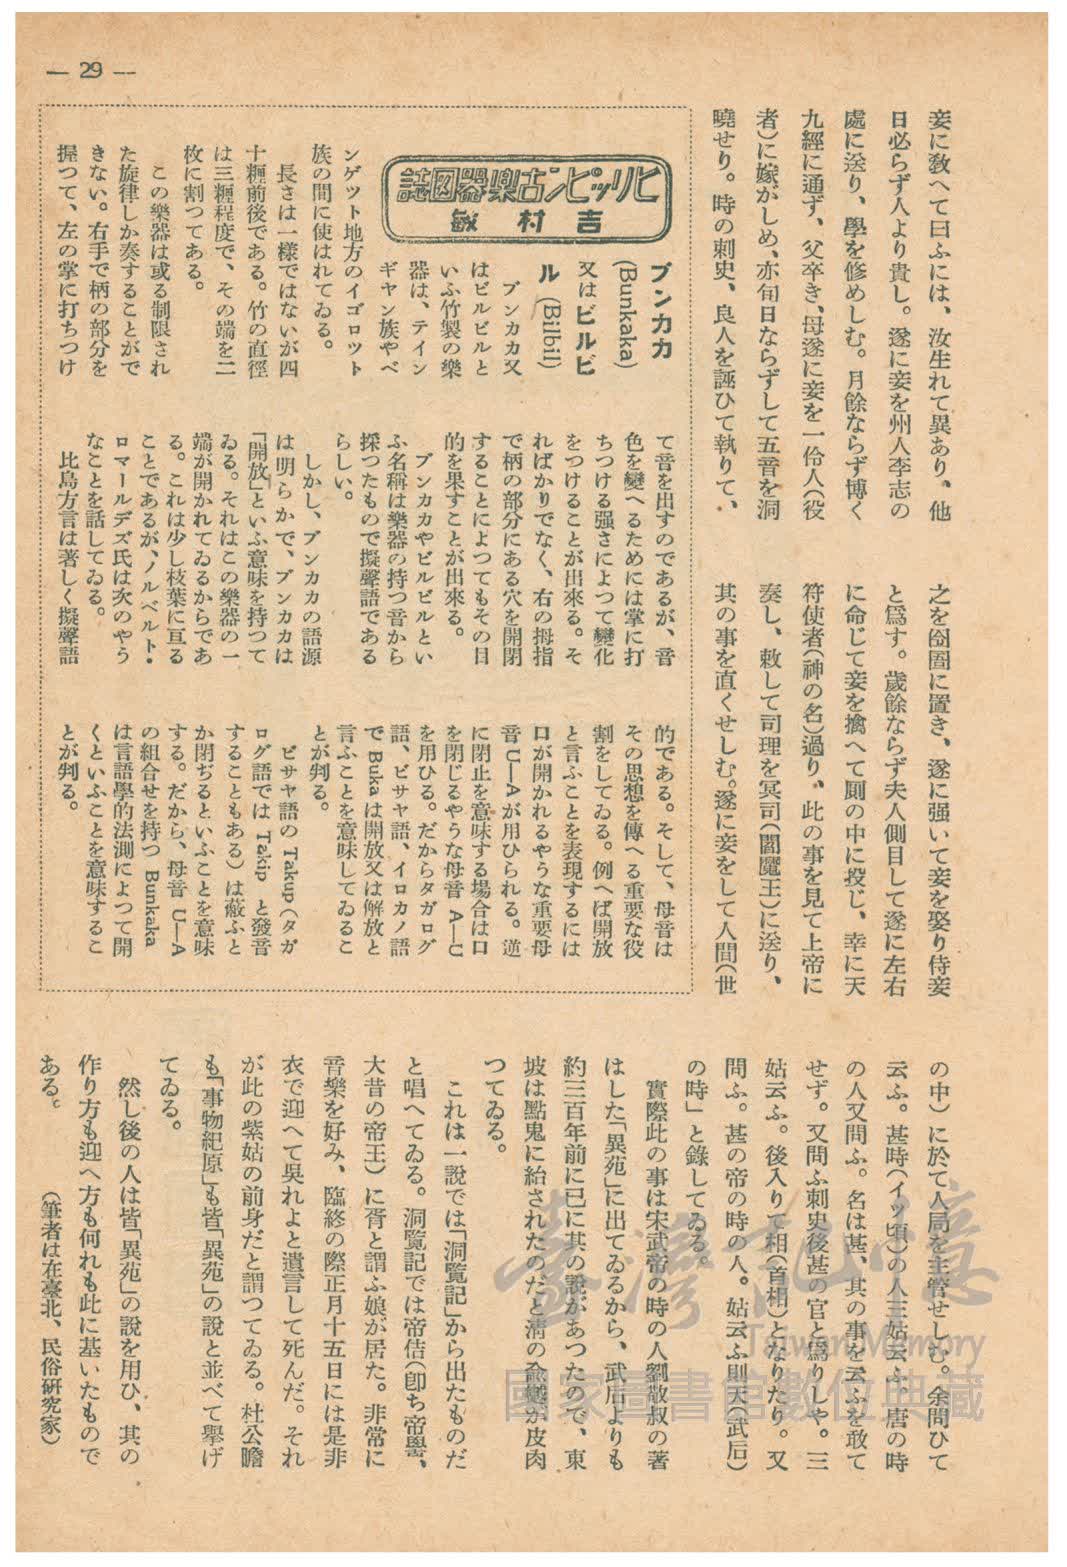 — 29 —
妾に敎へて曰ふには、汝生れて異あり、他
日必らず人より貴し。遂に妾を州人李志の
處に送り、學を修めしむ。月餘ならず博く
九經に通ず、父卒き、母遂に妾を一伶人(役
者)に嫁がしめ、亦旬日ならずして五音を洞
曉せり。時の刺史、良人を誣ひて執りて、
之を囹圄に置き、遂に强いて妾を娶り侍妾
と爲す。歲餘ならず夫人側目して遂に左右
に命じて妾を擒へて厠の中に投じ、幸に天
符使者(神の名)過り、此の事を見て上帝に
奏し、敕して司理を冥司(閻魔王)に送り、
其の事を直くせしむ。遂に妾をして人間(世
の中)に於て人局を主管せしむ。余問ひて
云ふ。甚時(イツ頃)の人三姑云ふ。唐の時
の人又問ふ。名は甚、其の事を云ふを敢て
せず。又問ふ刺史後甚の官と爲りしや。三
姑云ふ。後入りて相(首相)となりたり。又
問ふ。甚の帝の時の人。姑云ふ則天(武后)
の時」と錄してゐる。
實際此の事は宋武帝の時の人劉敬叔の著
はした「異苑」に出てゐるから、武后よりも
約三百年前に已に其の說があつたので、東
坡は點鬼に紿されたのだと淸の兪樾が皮肉
つてゐる。
これは一說では「洞覽記」から出たものだ
と唱へてゐる。洞覽記では帝佶(卽ち帝嚳、
大昔の帝王)に胥と謂ふ娘が居た。非常に
音樂を好み、臨終の際正月十五日には是非
衣で迎へて吳れよと遺言して死んだ。それ
が此の紫姑の前身だと謂つてゐる。杜公瞻
も「事物紀原」も皆「異苑」の說と並べて擧げ
てゐる。
然し後の人は皆「異苑」の說を用ひ、其の
作り方も迎へ方も何れも此に基いたもので
ある。
(筆者は在臺北、民俗硏究家)
ヒリッピン古樂器図誌
吉村敏
ブンカカ
(Bunkaka)
又はビルビ
ル (Bilbil)
ブンカカ又
はビルビルと
いふ竹製の樂
器は、テイン
ギヤン族やベ
ンゲツト地方のイゴロツト
族の間に使はれてゐる。
長さは一樣ではないが四
十糎前後である。竹の直徑
は三糎程度で、その端を二
枚に割つてある。
この樂器は或る制限され
た旋律しか奏することがで
きない。右手で柄の部分を
握つて、左の掌に打ちつけ
て音を出すのであるが、音
色を變へるためには掌に打
ちつける强さによつて變化
をつけることが出來る。そ
ればかりでなく、右の拇指
で柄の部分にある穴を開閉
することによつてもその目
的を果すことが出來る。
ブンカカやビルビルとい
ふ名稱は樂器の持つ音から
採つたもので擬聲語である
らしい。
しかし、ブンカカの語源
は明らかで、ブンカカは
「開放」といふ意味を持つて
ゐる。それはこの樂器の一
端が開かれてゐるからであ
る。これは少し枝葉に亘る
ことであるが、ノルベルト・
ロマールデズ氏は次のやう
なことを話してゐる。
比島方言は著しく擬聲語
的である。そして、母音は
その思想を傳へる重要な役
割をしてゐる。例へば開放
と言ふことを表現するには
口が開かれるやうな重要母
音 U—A が用ひられる。逆
に閉止を意味する場合は口
を閉じるやうな母音 A—U
を用ひる。だからタガログ
語、ビサヤ語、イロカノ語
で Buka は開放又は解放と
言ふことを意味してゐるこ
とが判る。
ビサヤ語の Takup(タガ
ログ語では Takip と發音
することもある)は蔽ふと
か閉ぢるといふことを意味
する。だから、母音 U—A
の組合せを持つ Bunkaka
は言語學的法測によつて開
くといふことを意味するこ
とが判る。
臺灣記憶
Taiwan Memory
國家圖書館數位典藏